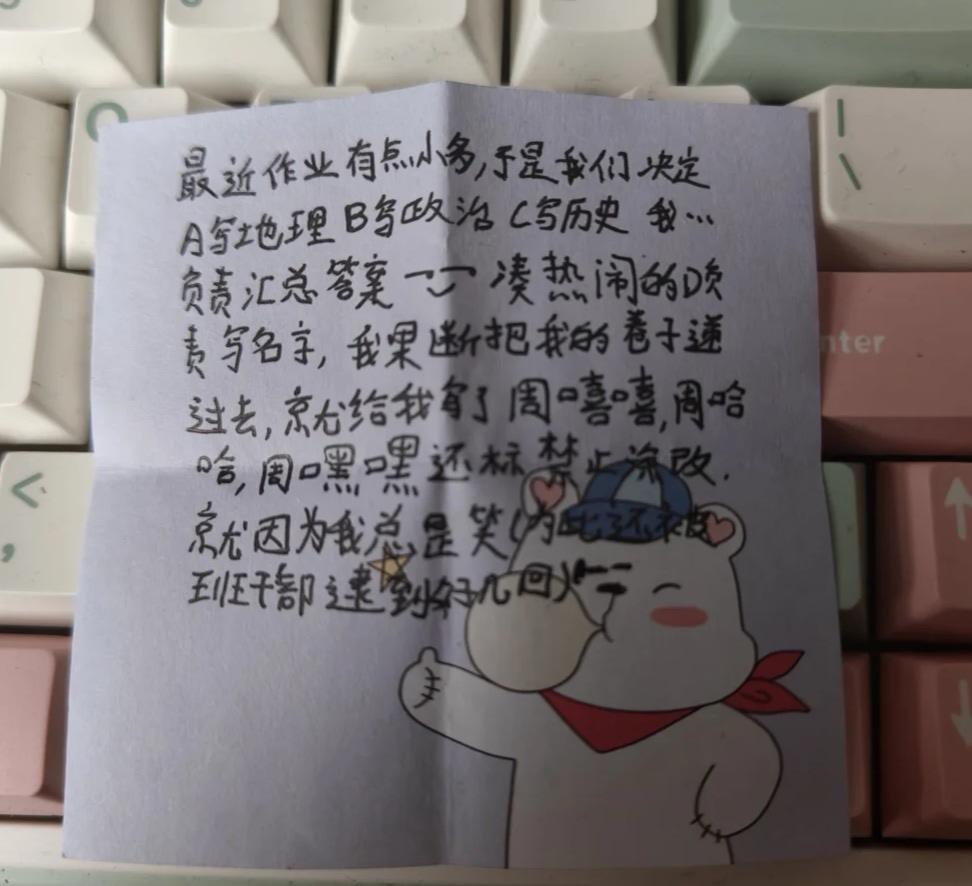 最近作业有点小多,于是我们决定
A写地理 B写政治 C写历史 我…
负责汇总答案 凑热闹的D负
责写名字, 我果断把我的卷子递
过去, 就给我写了周嘻嘻, 周哈
哈, 周嘿嘿还标禁止涂改.
就因为我总是笑(为此还被
班干部逮到好几回)
nter